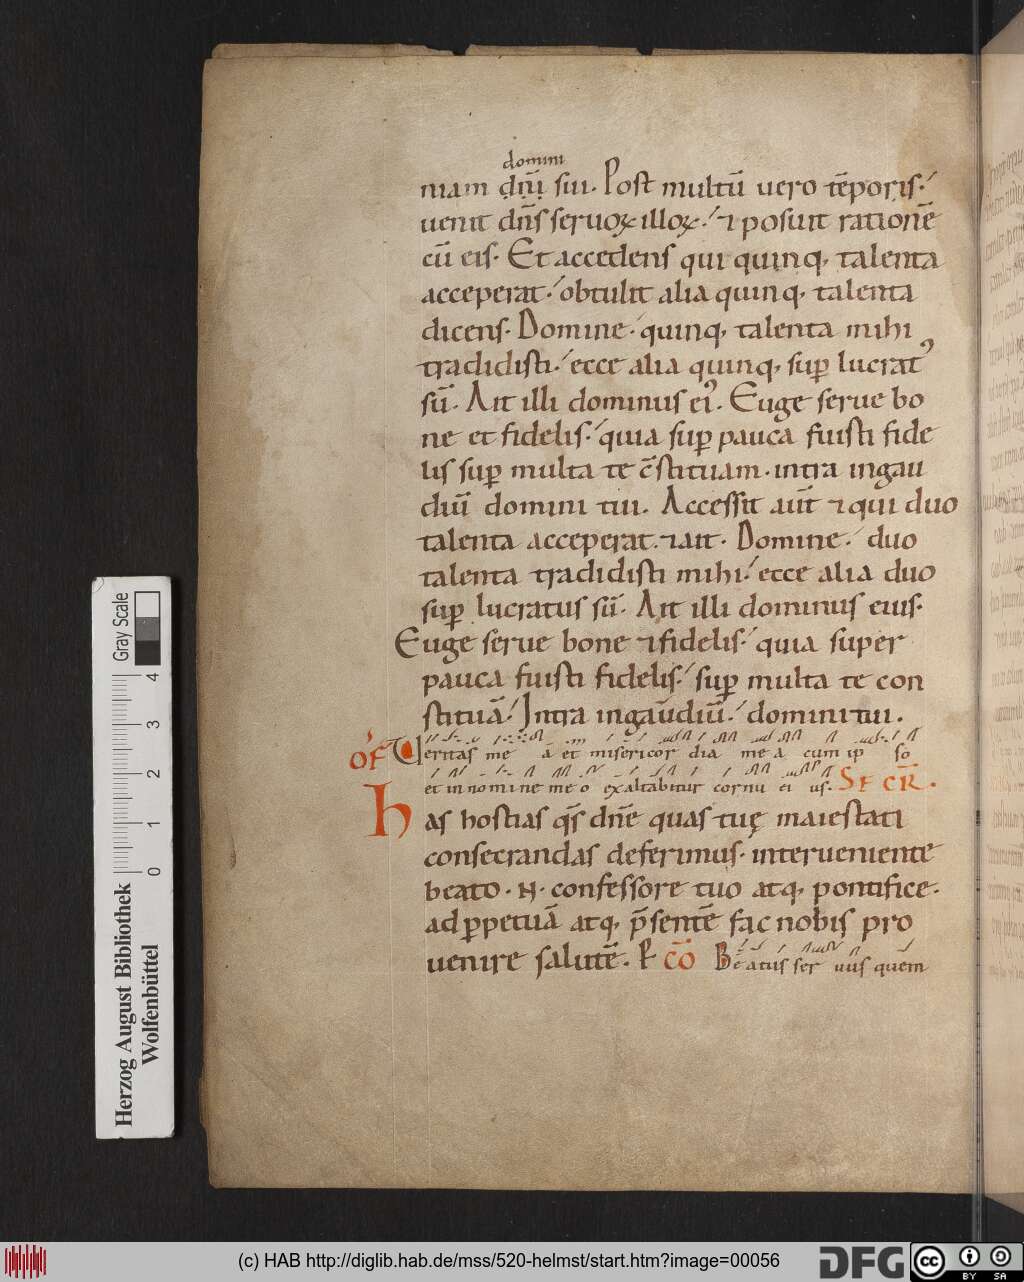 domini
niam dñi sui. Post multũ uero tẽporis.
uenit dñs seruoꝝ illoꝝ. ⁊ posuit rationẽ
cũ eis. Et accedens qui quinq, talenta
acceperat. obtulit alia quinq, talenta
dicens. Domine. quinq, talenta mihi
tradidisti. ecce alia quinq, suꝑ lucratꝰ
sũ. Ait illi dominus eiꝰ. Euge serue bo
ne et fidelis. quia suꝑ pauca fuisti fide
lis suꝑ multa te c̃stituam. intra ingau
diũ domini tui. Accessit aut̃ ⁊ qui duo
talenta acceperat. ⁊ ait. Domine. duo
talenta tradidisti mihi. ecce alia duo
suꝑ lucratus sũ. Ait illi dominus eius.
Euge serue bone ⁊ fidelis. quia super
pauca fuisti fidelis. suꝑ multa te con
stituã. Intra ingaudiũ. domini tui.
OF Ueritas me a et misericor dia me a cum ip so
et in nomine me o exaltabitur cornu ei us. SECR̃.
has hostias q̃s dñe quas tuę maiestati
consecrandas deferimus. interueniente
beato. N. confessore tuo atq, pontifice.
ad ꝑpetuã atq, p̃sentẽ fac nobis pro
uenire salutẽ. P cõ Beatus ser uus quem
Gray Scale
4 3 2 1 0
Herzog August Bibliothek
Wolfenbüttel
(c) HAB http://diglib.hab.de/mss/520-helmst/start.htm?image=00056
DFG
cc BY SA